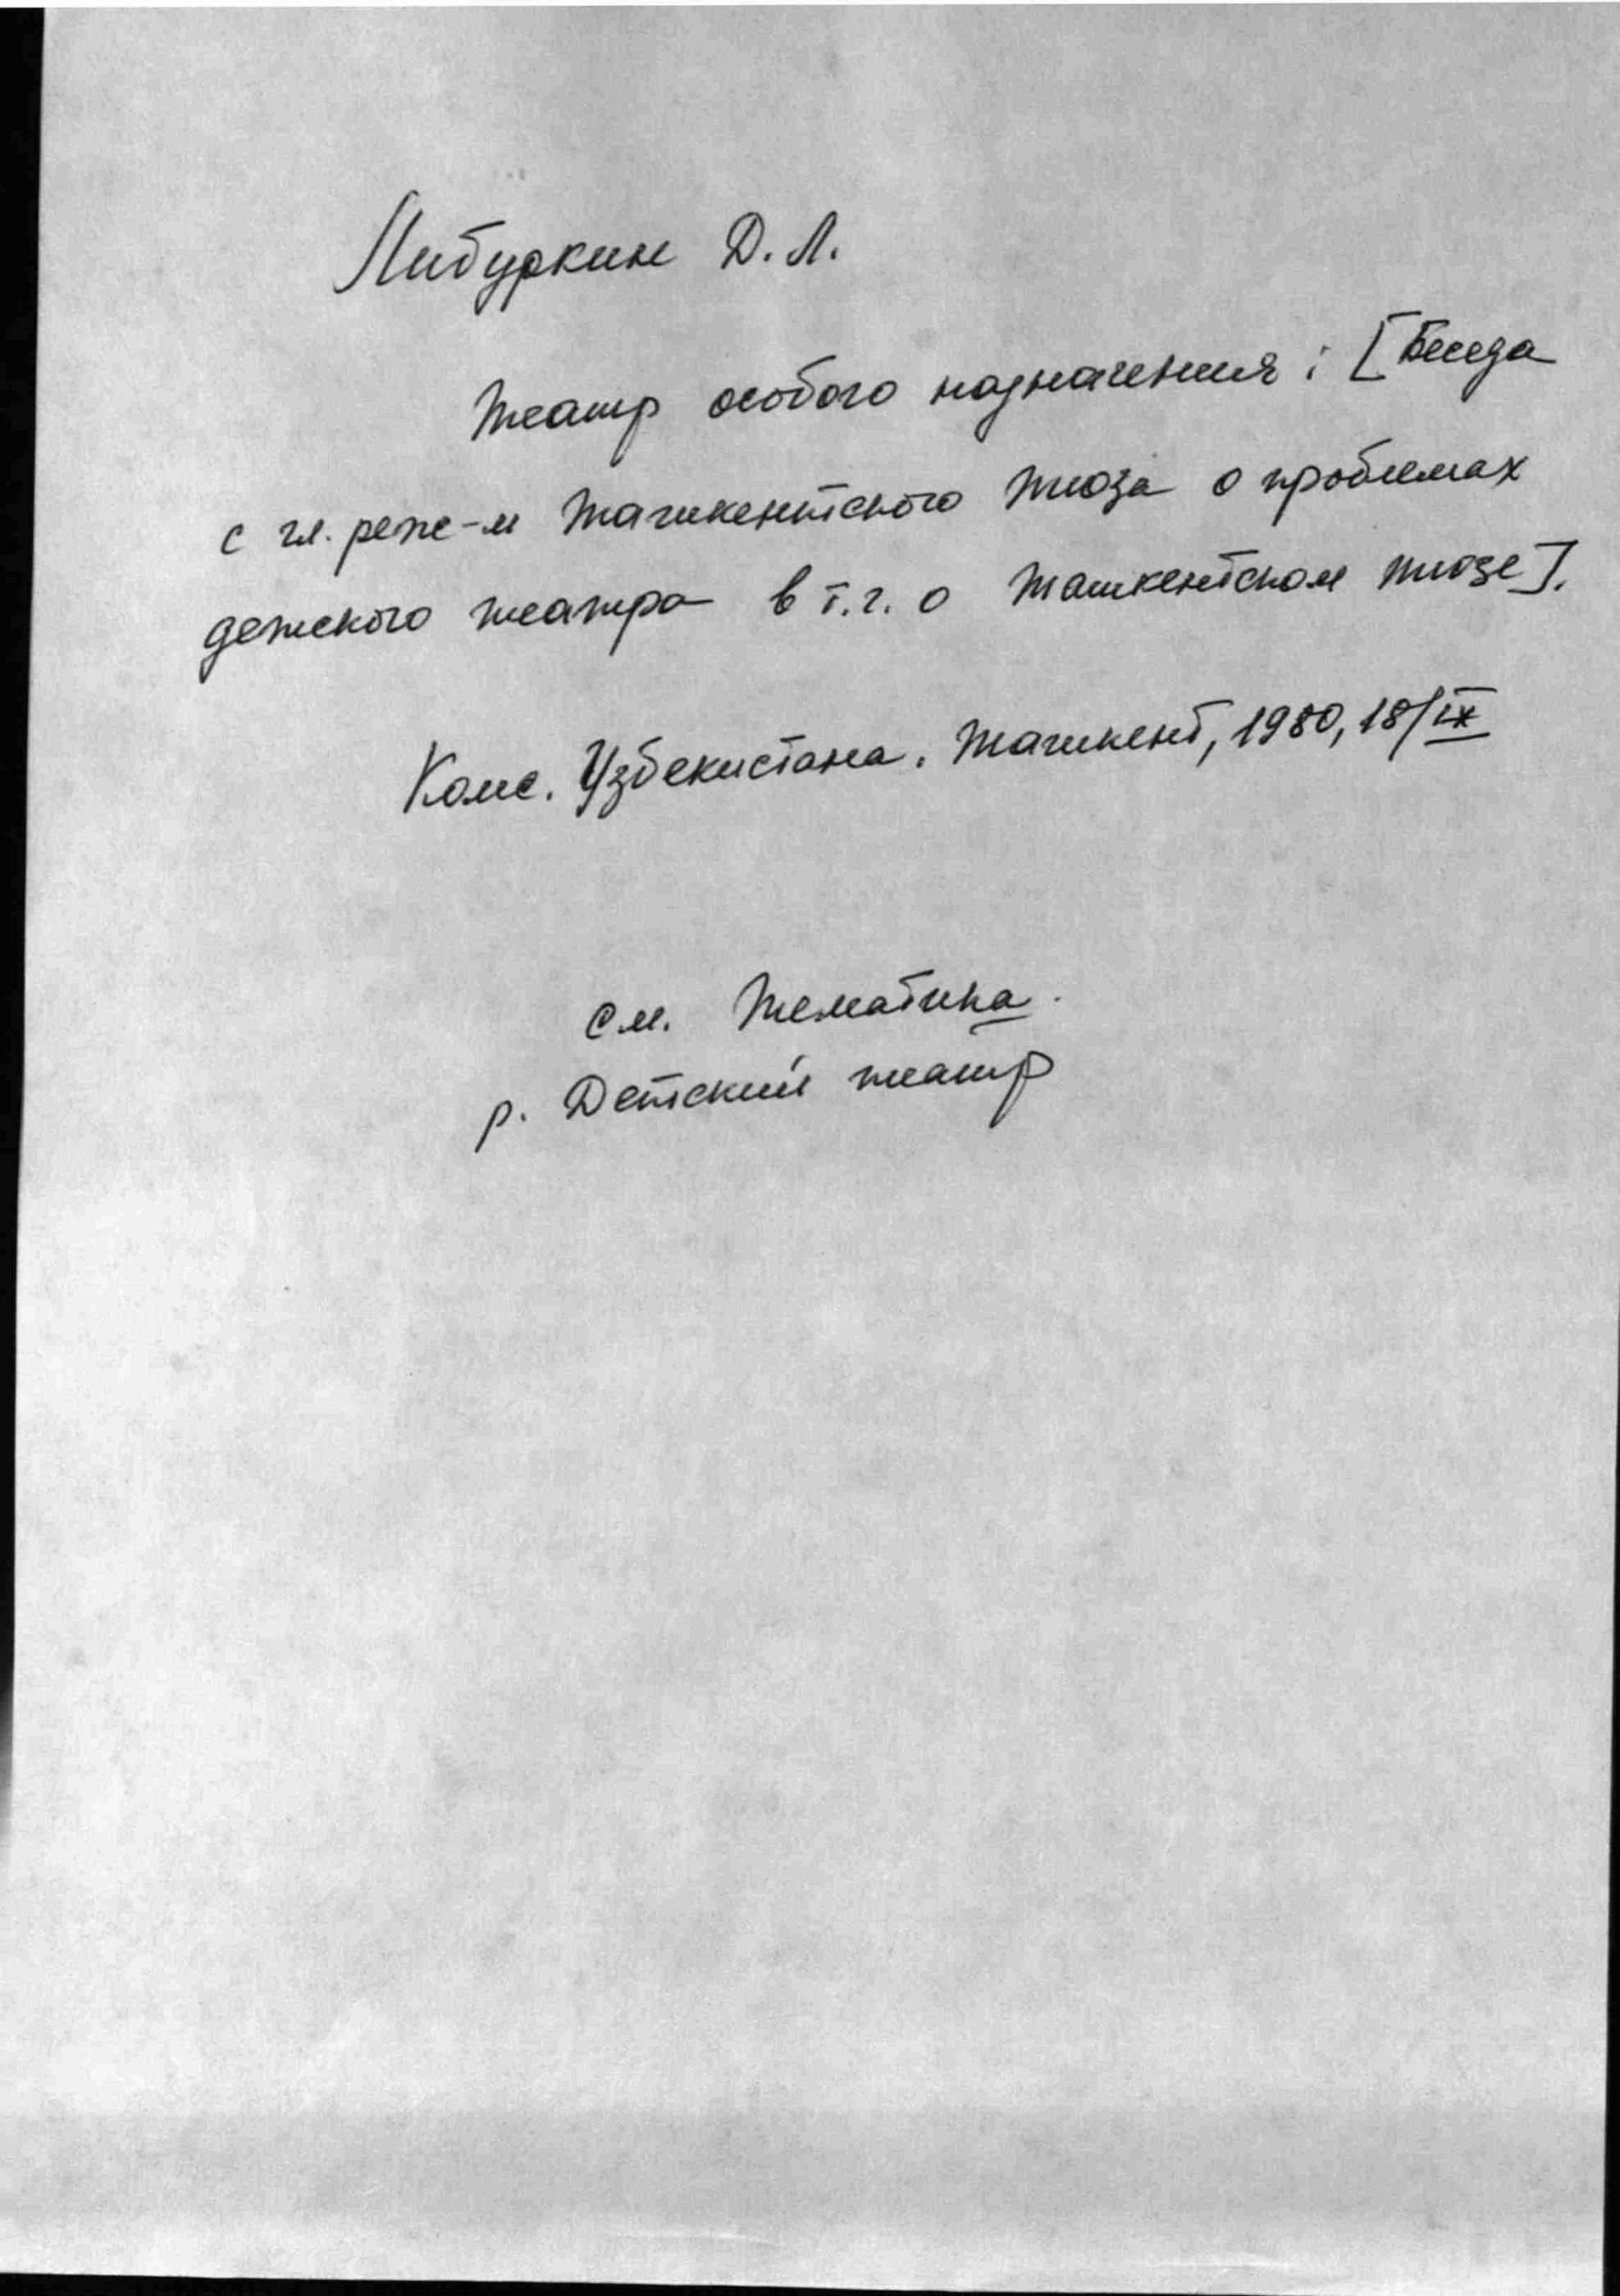 Либуркин Д. Л.
Театр особого назначения : [Беседа
с гл. реж-м Ташкентского тюза о проблемах
детского театра в т.г. о Ташкентском тюзе].
Комс. Узбекистана. Ташкент, 1980, 18/IX
см. Тематика.
р. Детский театр